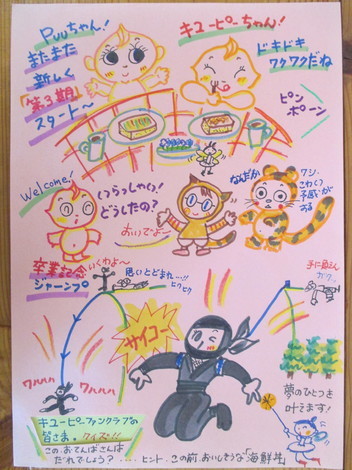 Puuちゃん!
またまた
新しく
「第3期」
スタート〜
キューピーちゃん!
ドキドキ
ワクワクだね
ピン
ポーン
Welcome!
いらっしゃい!
どうしたの?
おいでよ〜
なんだか
ワシ
こわい
予感が
する
卒業記念
いくわよ〜
ジャーンプ
思いとどまれ…!!
ヒクヒク
サイコー
ワハハハ
ワハハハ
夢のひとつを
叶てます!
キューピーファンクラブの
皆さま。クイズ!!
このおてんばさんは
だれでしょう? ‥‥ ヒント‥この前、おいしそうな「海鮮丼」